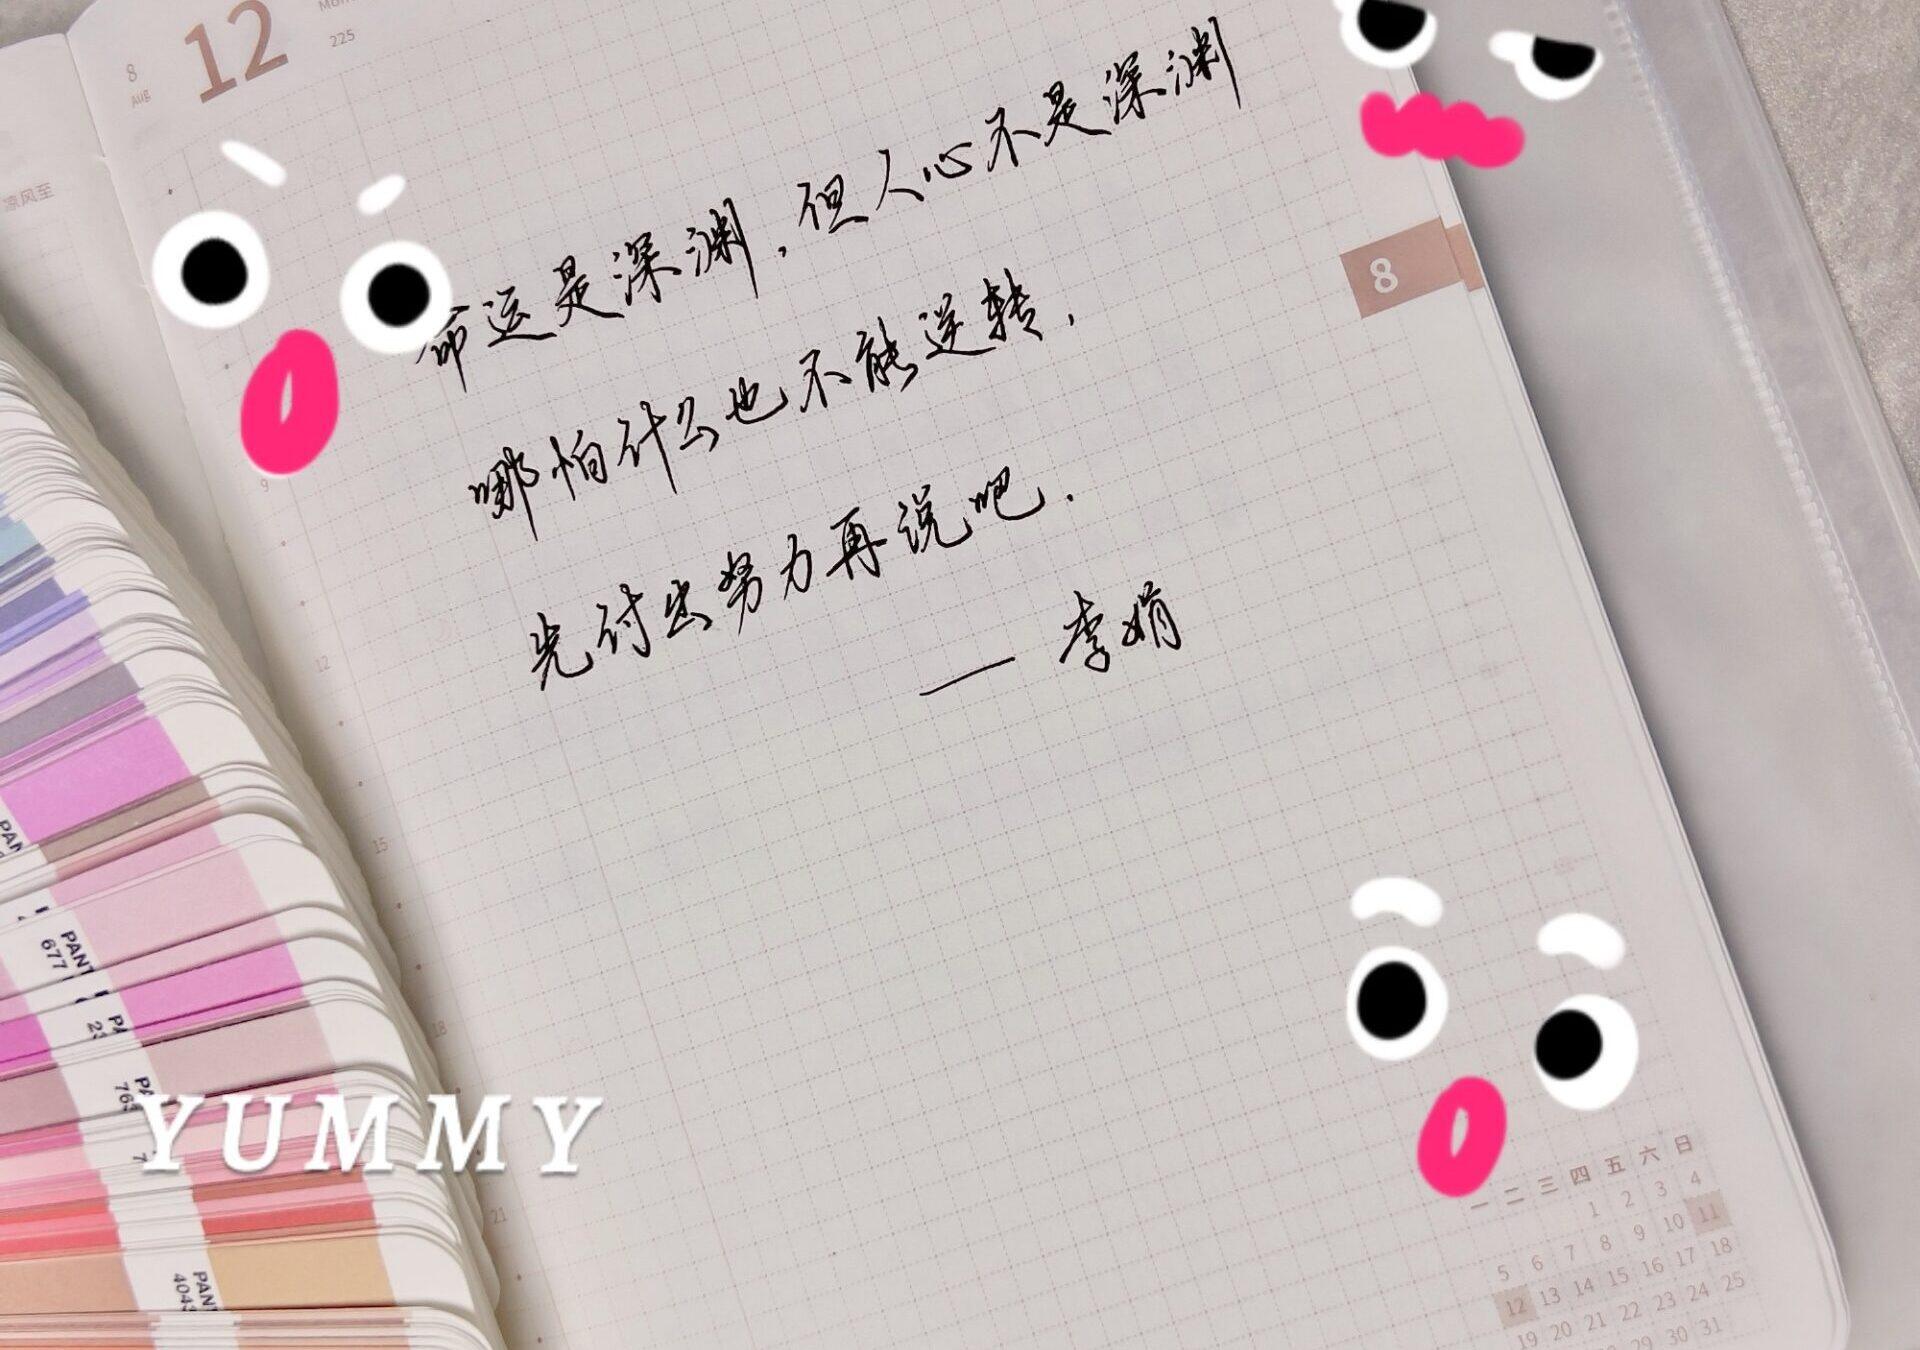 12
8
Aug
225
凉风至
命运是深渊,但人心不是深渊
哪怕什么也不能逆转,
先付出努力再说吧.
— 李娟
8
9
12
15
18
21
PANT
677
PANT
4043
YUMMY
一 二 三 四 五 六 日
1 2 3 4
5 6 7 8 9 10 11
12 13 14 15 16 17 18
19 20 21 22 23 24 25
29 30 31